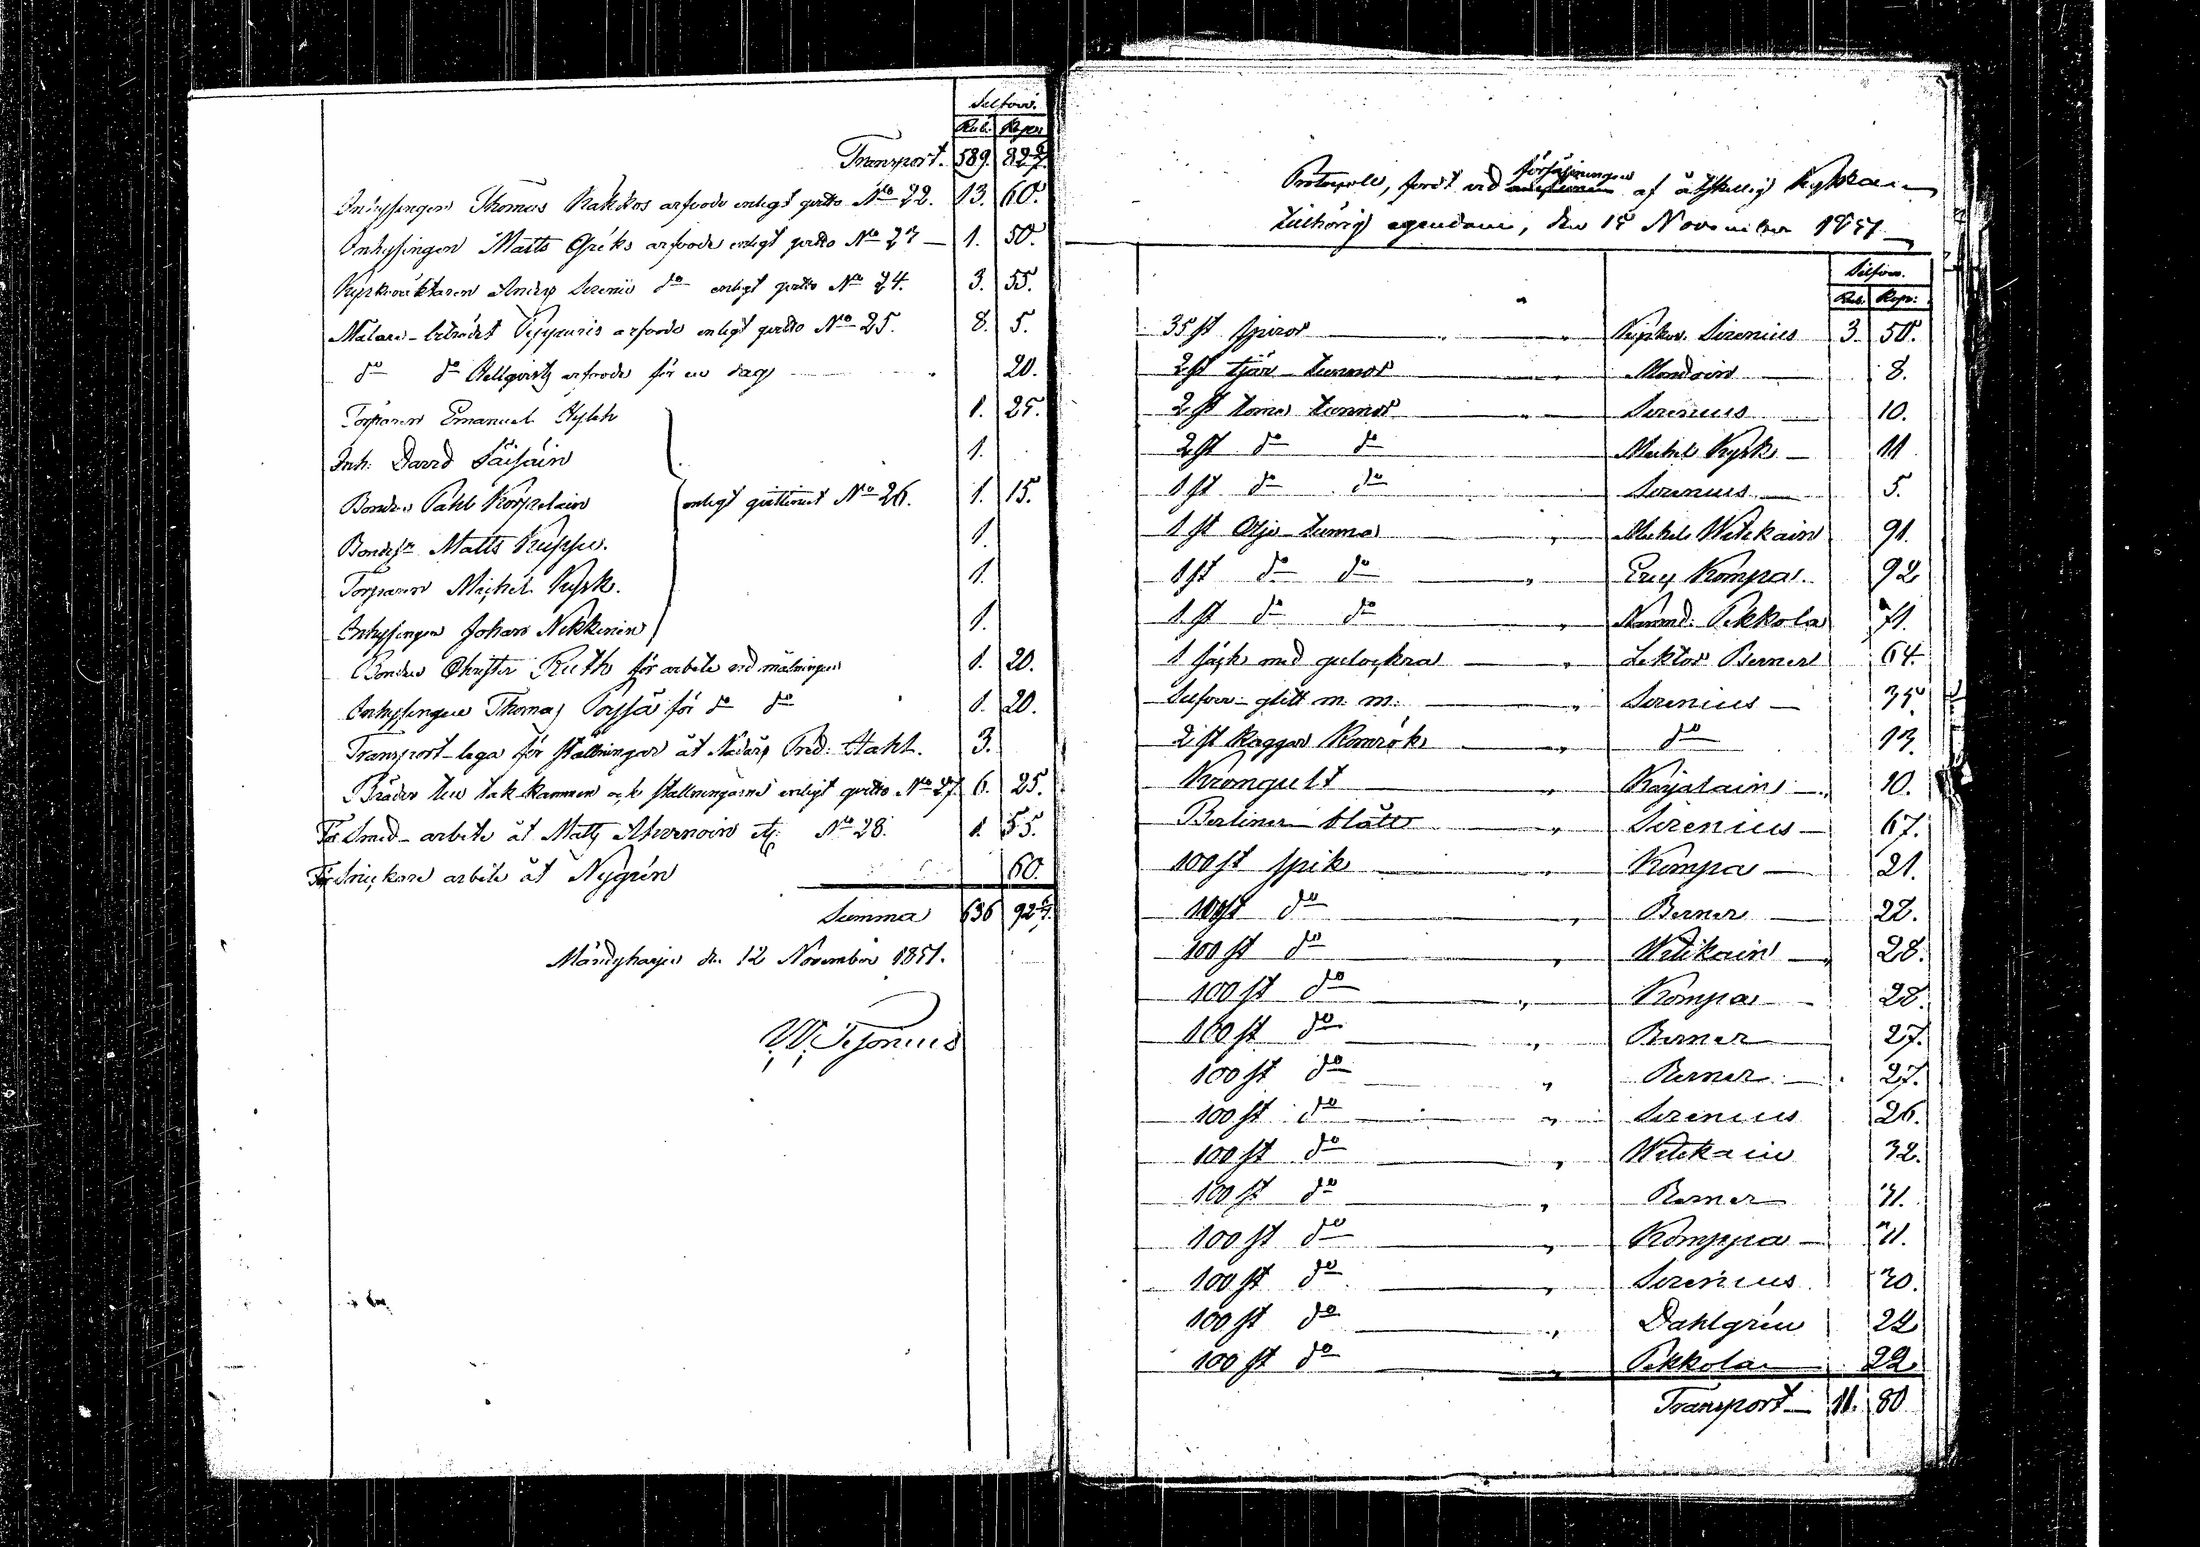 Silfver.
Rub. Kopek
Transport. 589. 82 2/7.
Inhysingen Thomas Rakkos arfvode enligt qvitto No 22. 13. 60.
Inhysingen Matts Gréks arfvode enligt qvitto No 23 — 1. 50.
Kyrkoväktaren Anders Sirenii do enligt qvitto No 24. 3. 55.
Målare-biträdet arfvode enligt qvitto No 25. 8. 5.
do do Hellqvists arfvode för en dag 20.
Torparen Emanuel 1. 25.
Inh: David Säisäin 1.
Bonden Påhl Korpelain enligt qvittencet No 26. 1. 15.
Bondes: Matts Kuppu. 1.
Torparen Michel Kysk. 1.
Inhysingen Johan Nikkinen 1.
Bonden Christer Ruth för arbete vid målningen 1. 20.
Inhysingen Thomas för do do 1. 20.
Transport-lega för ställningar åt Fred: Stahl. 3.
Bräder till tak kammen och ställningarne enligt qvitto No 27 6. 25.
För Smed-arbete åt Matts No 28. 1. 55.
För Snickare arbete åt Nygrén 60.
Summa 636 92 6/7.
Mändyharju den 12 November 1851.
W. Tesonius
Protocoll, fördt vid försäljningen af åtskillig Kyrkan
tillhörig egendom, den 15 November 1851
Silfver.
Rub. Kop:
35 st spiror — " — " Kyrkov. Sirenius 3. 50.
2 st tjär-tunnor Mondoin — 8.
2 st toma tunnor — " Sirenius — 10.
2 st do do Michel Kysk — 11
1 st do do Sirenius — 5.
1 st Olje-tunna — " Michel Witikain 91.
1 st do do — " Eric Kompa. 92
1 st do do — " Nämnd: Pekkola 71.
1 säck med gulockra — " Lektor Berner 64.
Silfver-glitt m. m. — " Sirenius — 35.
2 st kaggar Kimrök — " do 13.
Kromgult — " Karjalain — 10.
Berliner-blått — " Sirenius — 67.
100 st spik — " Kompa — 21.
100 st do — " Berner — 22.
100 st do — " Witikain — 28.
100 st do — " Kompa — 28.
100 st do — " Berner — 27.
100 st do — " Berner — 27.
100 st do — " Sirenius 26.
100 st do — " Witikain 32.
100 st do — " Berner 31.
100 st do — " Komppa — 31.
100 st do — " Sirenius 30.
100 st do — " Dahlgrén 22
100 st do — " Pekkola — 22
Transport — 11. 80